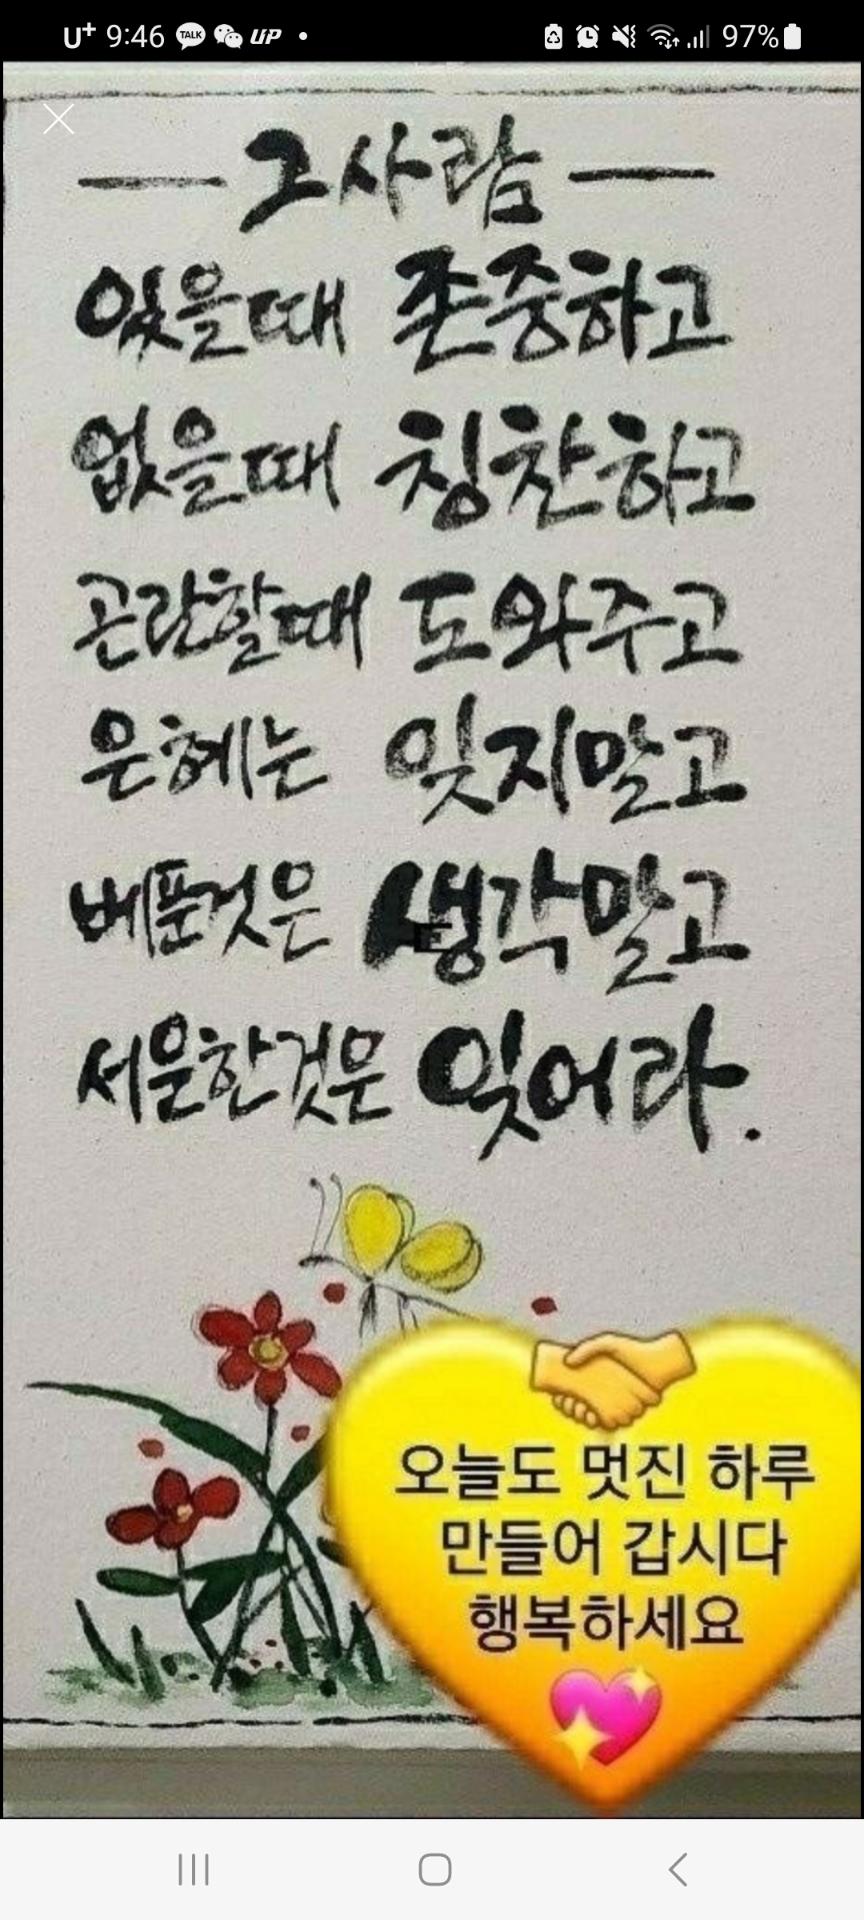 U+ 9:46 TALK UP 97%
그사람
있을때 존중하고
없을때 칭찬하고
곤란할때 도와주고
은혜는 잊지말고
베푼것은 생각말고
서운한것은 잊어라.
오늘도 멋진 하루
만들어 갑시다
행복하세요